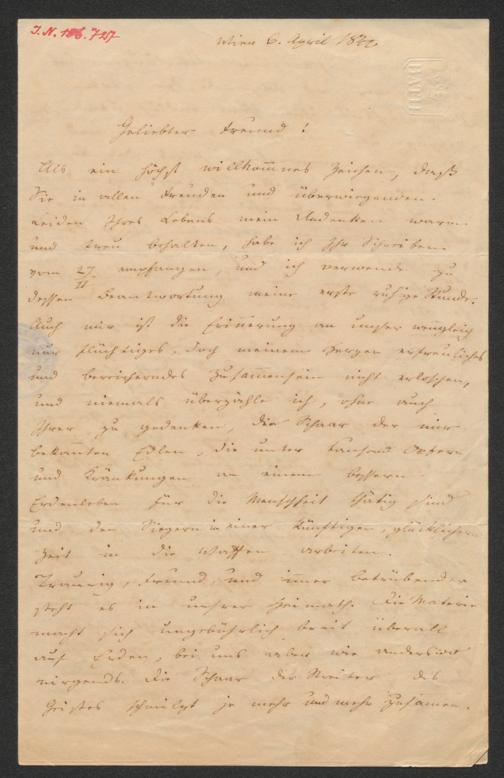 I.N. 186.747
Wien 6. April 18
BATH
Geliebter Freund!
Als ein höchst willkomnes Zeichen, daß
Sie in allen Freuden und überwiegenden
Leiden Ihres Lebens mein Andenken warm
und treu behalten, habe ich Ihr Schreiben
vom 27. II empfangen, und ich verwende zu
dessen Beantwortung meine erste ruhige Stunde.
Auch mir ist die Erinnerung an unser wenngleich
nur flüchtiges, doch meinem Herzen erfreuliches
und bereicherndes Zusammensein nicht erloschen,
und niemals überzähle ich, ohne auch
Ihrer zu gedenken, die Schaar der mir
bekannten Edlen, die unter tausend Opfern
und Kränkungen an einem bessern
Erdenleben für die Menschheit thätig sind
und den Siegern in einer künftigen, glücklichern
Zeit in die Waffen arbeiten.
Traurig, Freund, und immer betrübender
steht es in unsrer Heimath. Die Materie
macht sich ungebührlich breit überall
auf Erden, bei uns aber wie anderswo
nirgends. Die Schaar der Streiter des
Geistes schmilzt je mehr und mehr zusamen.